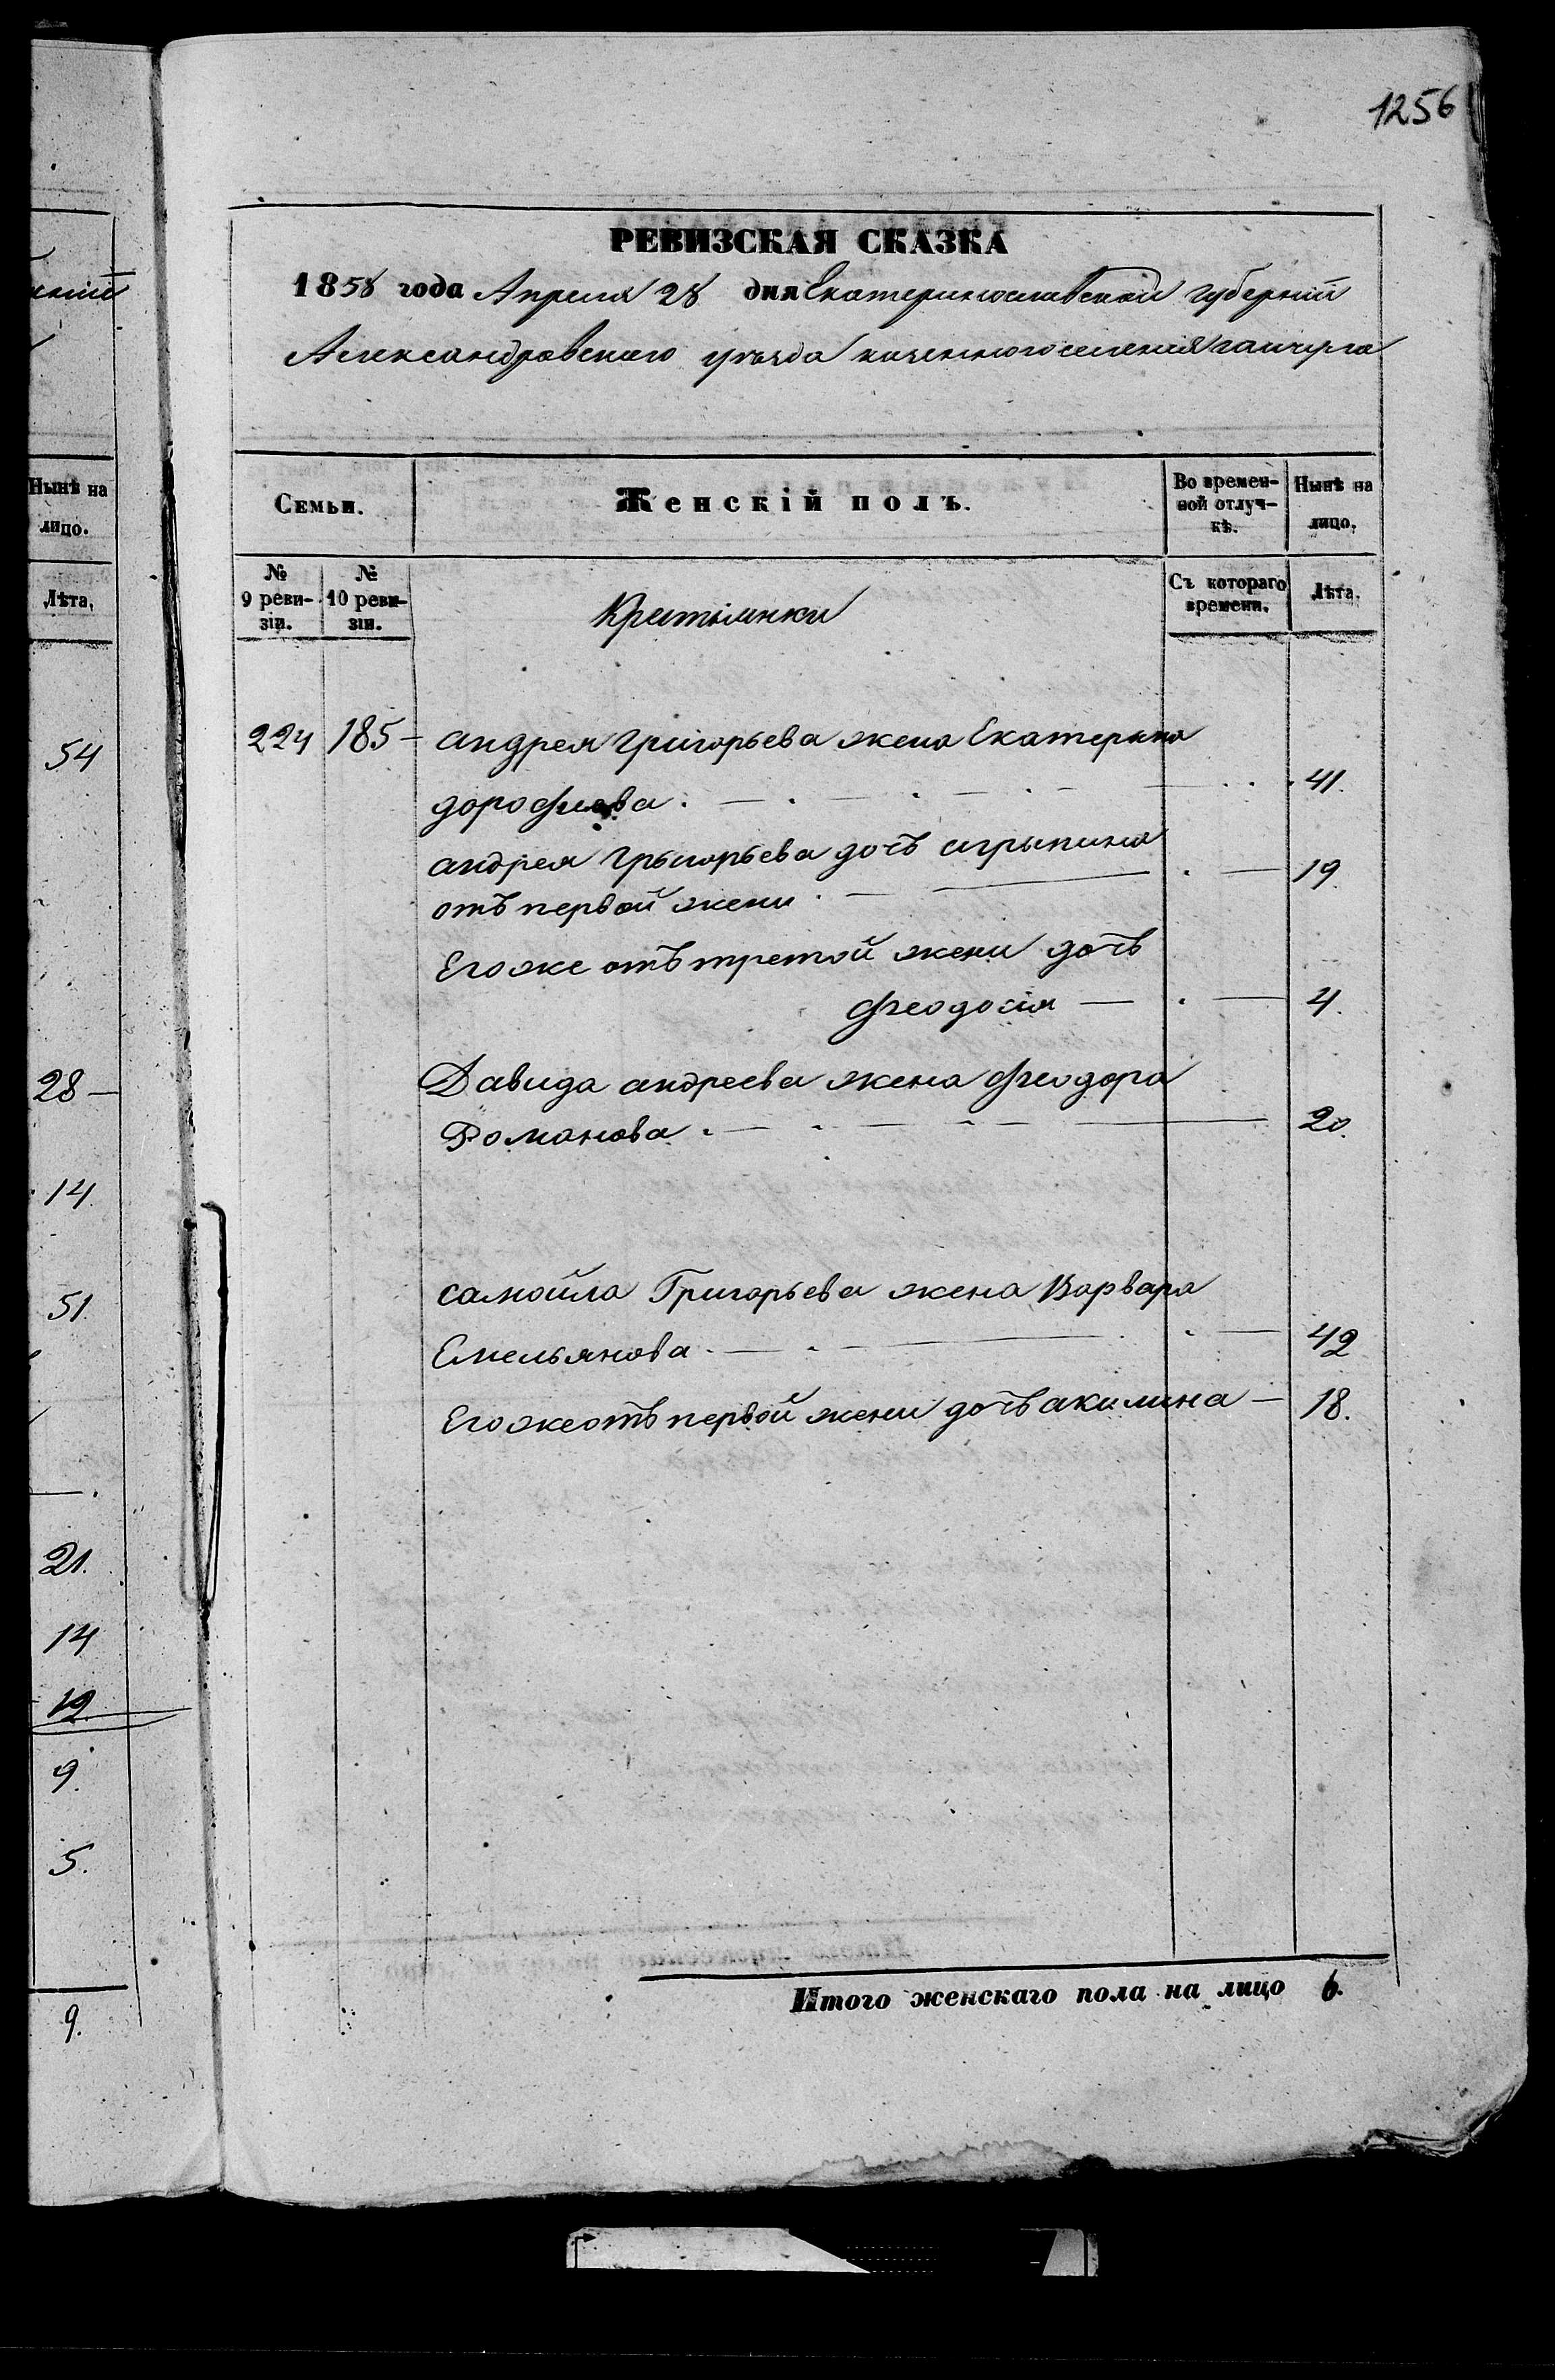 1256
РЕВИЗСКАЯ СКАЗКА
1858 года Апреля 28 дня Екатеринославской губернии
Александровского уезда казенного селения гайчула
Семьи.
Женскій полъ.
Во времен-
ной отлуч-
кѣ.
Нынѣ на
лицо.
№
9 реви-
зіи.
№
10 реви-
зіи.
Крестьянки
Съ котораго
времени.
Лѣта.
224 185 - андрея григорьева жена Екатерина
дорофиева. 41.
андрея Грыгорьева дочь агрыпина
отъ первой жени 19.
Егоже отъ третой жени дочь
феодосия 4.
Давида андреева жена феодора
Романова. 20.
самойла Григорьева жена Варвара
Емельянова 42
Егоже отъ первой жени дочь акилина - 18.
Итого женскаго пола на лицо 6.
Нынѣ на
лицо.
Лѣта.
54
28 -
14.
51.
21.
14
12
9.
5.
9.